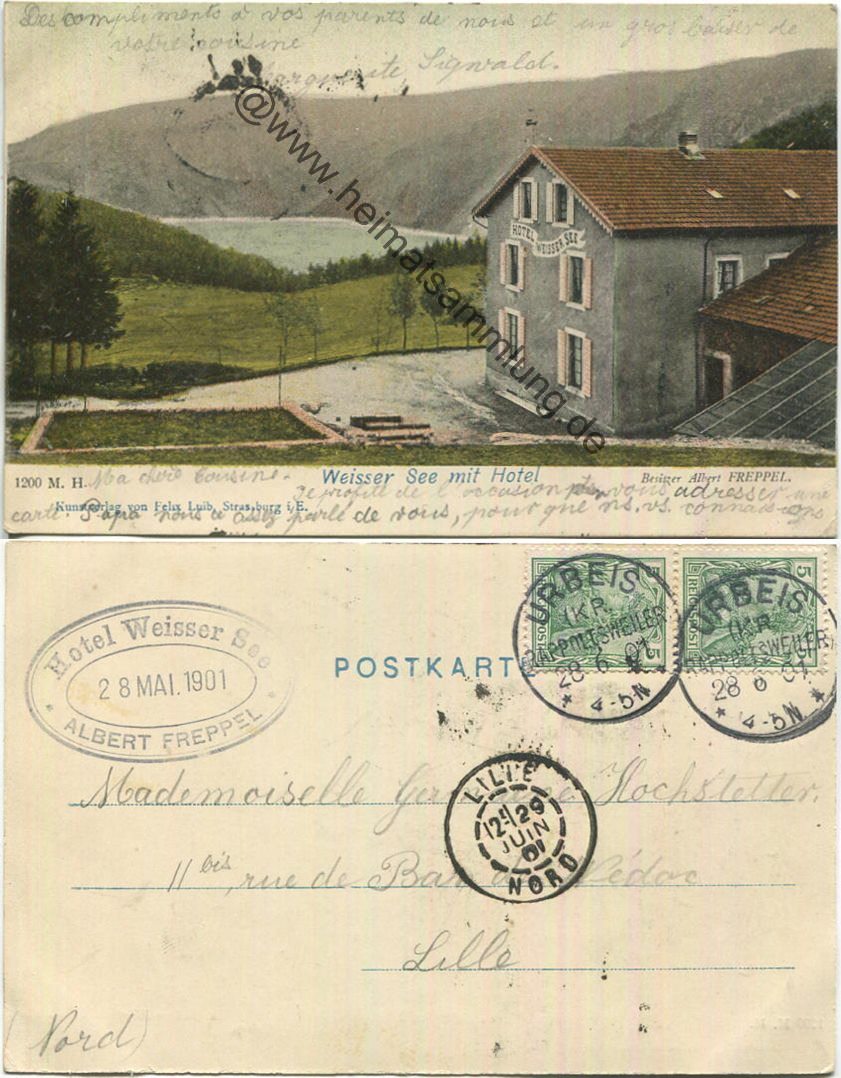 Des compliments à vos parents de nous et un gros baiser de
votre cousine
Marguerite Sigwald.
@www.heimatsammlung.de
HOTEL WEISSER SEE
1200 M. H.
Weisser See mit Hotel
Besitzer Albert FREPPEL.
Ma chère Cousine.
Je profite de l'occasion vous adresser une
Kunstverlag von Felix Luib, Strassburg i/E.
carte. Papa nous a assez parlé de vous, pour que ns. vs. connaissions
Hotel Weisser See
28 MAI. 1901
ALBERT FREPPEL
POSTKARTE
5 5
REICHSPOST
URBEIS
(KR.
RAPPOLTSWEILER)
28 6 01
4-5N
URBEIS
(KR.
RAPPOLTSWEILER)
28 6 01
4-5N
LILLE
12 29
JUIN
01
NORD
Mademoiselle Germaine Hochstetter.
11 bis, rue de Bar
Lille
(Nord)